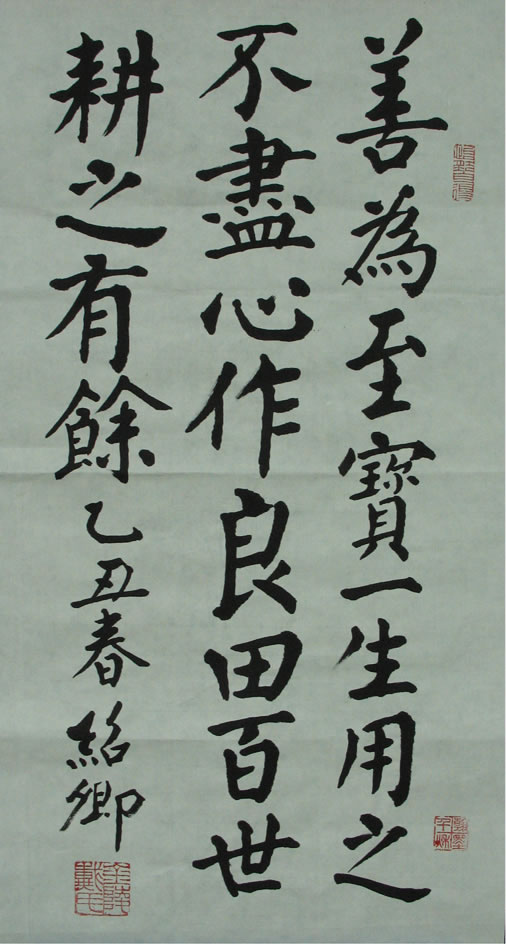 善為至寶一生用之
不盡心作良田百世
耕之有餘乙丑春紹卿